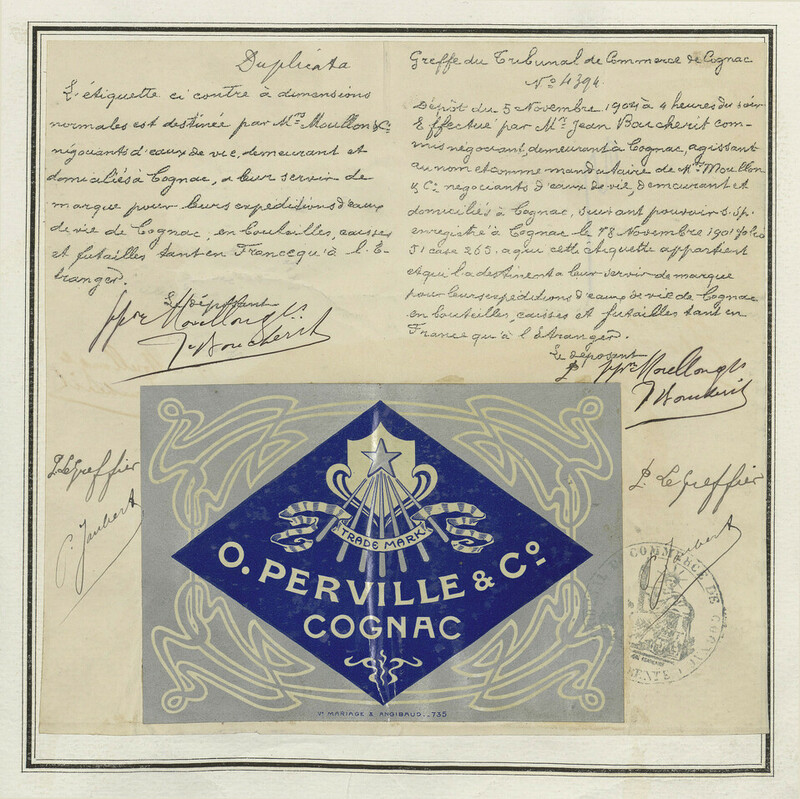 Duplicata
L'étiquette ci contre à dimensions
normales est destinée par Mrs Moullon & Co
négociants d'eaux de vie, demeurant et
domiciliés à Cognac, a leur servir de
marque pour leurs expéditions d'eaux
de vie de Cognac, en bouteilles, caisses
et futailles tant en France qu'à l'E-
tranger.
Le déposant
ppon Moullon & Co
J. Boucherit
P. Le Greffier
P. Jaubert
Greffe du Tribunal de Commerce de Cognac
No 4394
Dépôt du 5 Novembre 1904 à 4 heures du soir
Effectué par Mr Jean Boucherit com-
mis négociant, demeurant à Cognac, agissant
au nom et comme mandataire de Mrs Moullon
& Co négociants d'eaux de vie, demeurant et
domiciliés à Cognac, suivant pouvoir s. sp.
enregistré à Cognac le 18 Novembre 1901 folio
51 case 265. a qui cette étiquette appartient
et qui la destinent a leur servir de marque
pour leurs expéditions d'eaux de vie de Cognac
en bouteilles, caisses et futailles tant en
France qu'à l'étranger.
Le déposant
ppon Moullon & Co
J. Boucherit
P. Le Greffier
Jaubert
COMMERCE DE COGNAC
TRADE MARK
O. PERVILLE & Co
COGNAC
Vt MARIAGE & ANGIBAUD.. 735